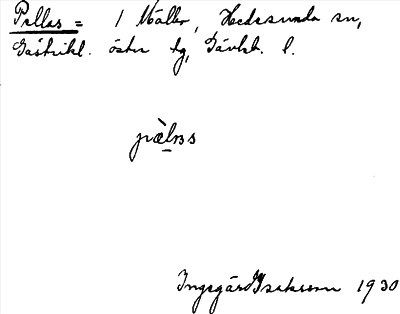 Pellas = 1 Mäller, Hedesunda sn,
Gästrikl. östra tg, Gävleb. l.
pèlas
Ingegärd Isaksson 1930